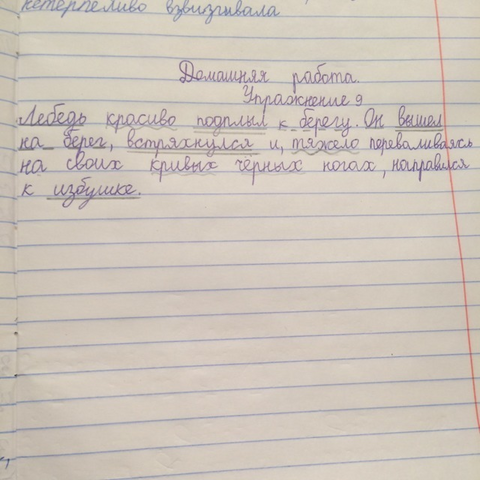 нетерпеливо взвизгивала
Домашняя работа.
Упражнение 9
Лебедь красиво подплыл к берегу. Он вышел
на берег, встряхнулся и, тяжело переваливаясь
на своих кривых чёрных ногах, направился
к избушке.